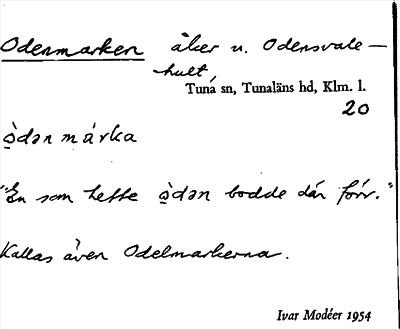 Odenmarken åker u. Odensvale-
hult,
Tuna sn, Tunaläns hd, Klm. l.
20
ò̱dən màrka
"En som hette ò̱dən bodde där förr."
Kallas även Odelmarkerna.
Ivar Modéer 1954